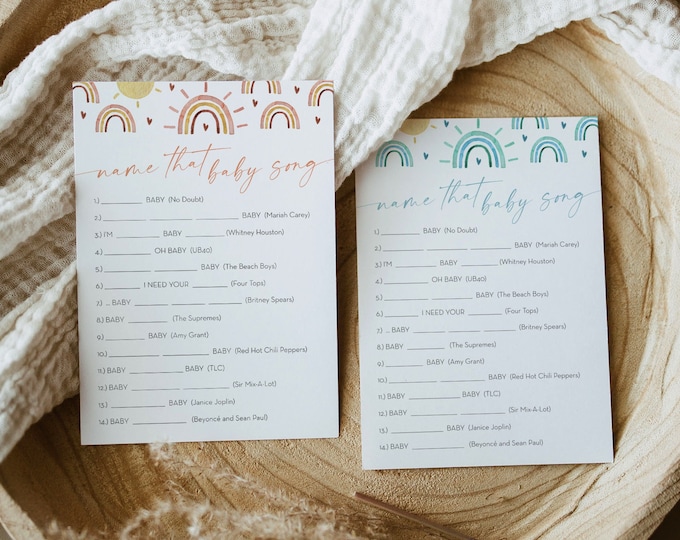 name that baby song
1.) ________ BABY (No Doubt)
2.) ________ ________ ________ BABY (Mariah Carey)
3.) I'M ________ BABY ________ (Whitney Houston)
4.) ________ OH BABY (UB40)
5.) ________ ________ BABY (The Beach Boys)
6.) ________ I NEED YOUR ________ (Four Tops)
7.) ... BABY ________ ________ ________ (Britney Spears)
8.) BABY ________ (The Supremes)
9.) ________ BABY (Amy Grant)
10.) ________ ________ BABY (Red Hot Chili Peppers)
11.) BABY ________ BABY (TLC)
12.) BABY ________ ________ (Sir Mix-A-Lot)
13.) ________ BABY (Janice Joplin)
14.) BABY ________ (Beyoncé and Sean Paul)
name that baby song
1.) ________ BABY (No Doubt)
2.) ________ ________ ________ BABY (Mariah Carey)
3.) I'M ________ BABY ________ (Whitney Houston)
4.) ________ OH BABY (UB40)
5.) ________ ________ BABY (The Beach Boys)
6.) ________ I NEED YOUR ________ (Four Tops)
7.) ... BABY ________ ________ ________ (Britney Spears)
8.) BABY ________ (The Supremes)
9.) ________ BABY (Amy Grant)
10.) ________ ________ BABY (Red Hot Chili Peppers)
11.) BABY ________ BABY (TLC)
12.) BABY ________ ________ (Sir Mix-A-Lot)
13.) ________ BABY (Janice Joplin)
14.) BABY ________ (Beyoncé and Sean Paul)